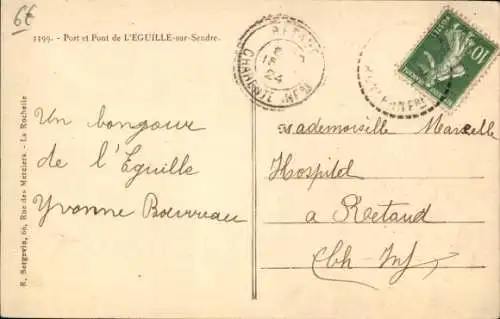 6€
3199. - Port et Pont de L'EGUILLE-sur-Seudre.
RETAUD
24
CHARENTE INFRE
10
Un bonjour
de l'Eguille
Yvonne Bourreau
Mademoiselle Marcelle
Hospital
a Retaud
Ch. Inf
R. Bergevin, 66, Rue des Merciers - La Rochelle